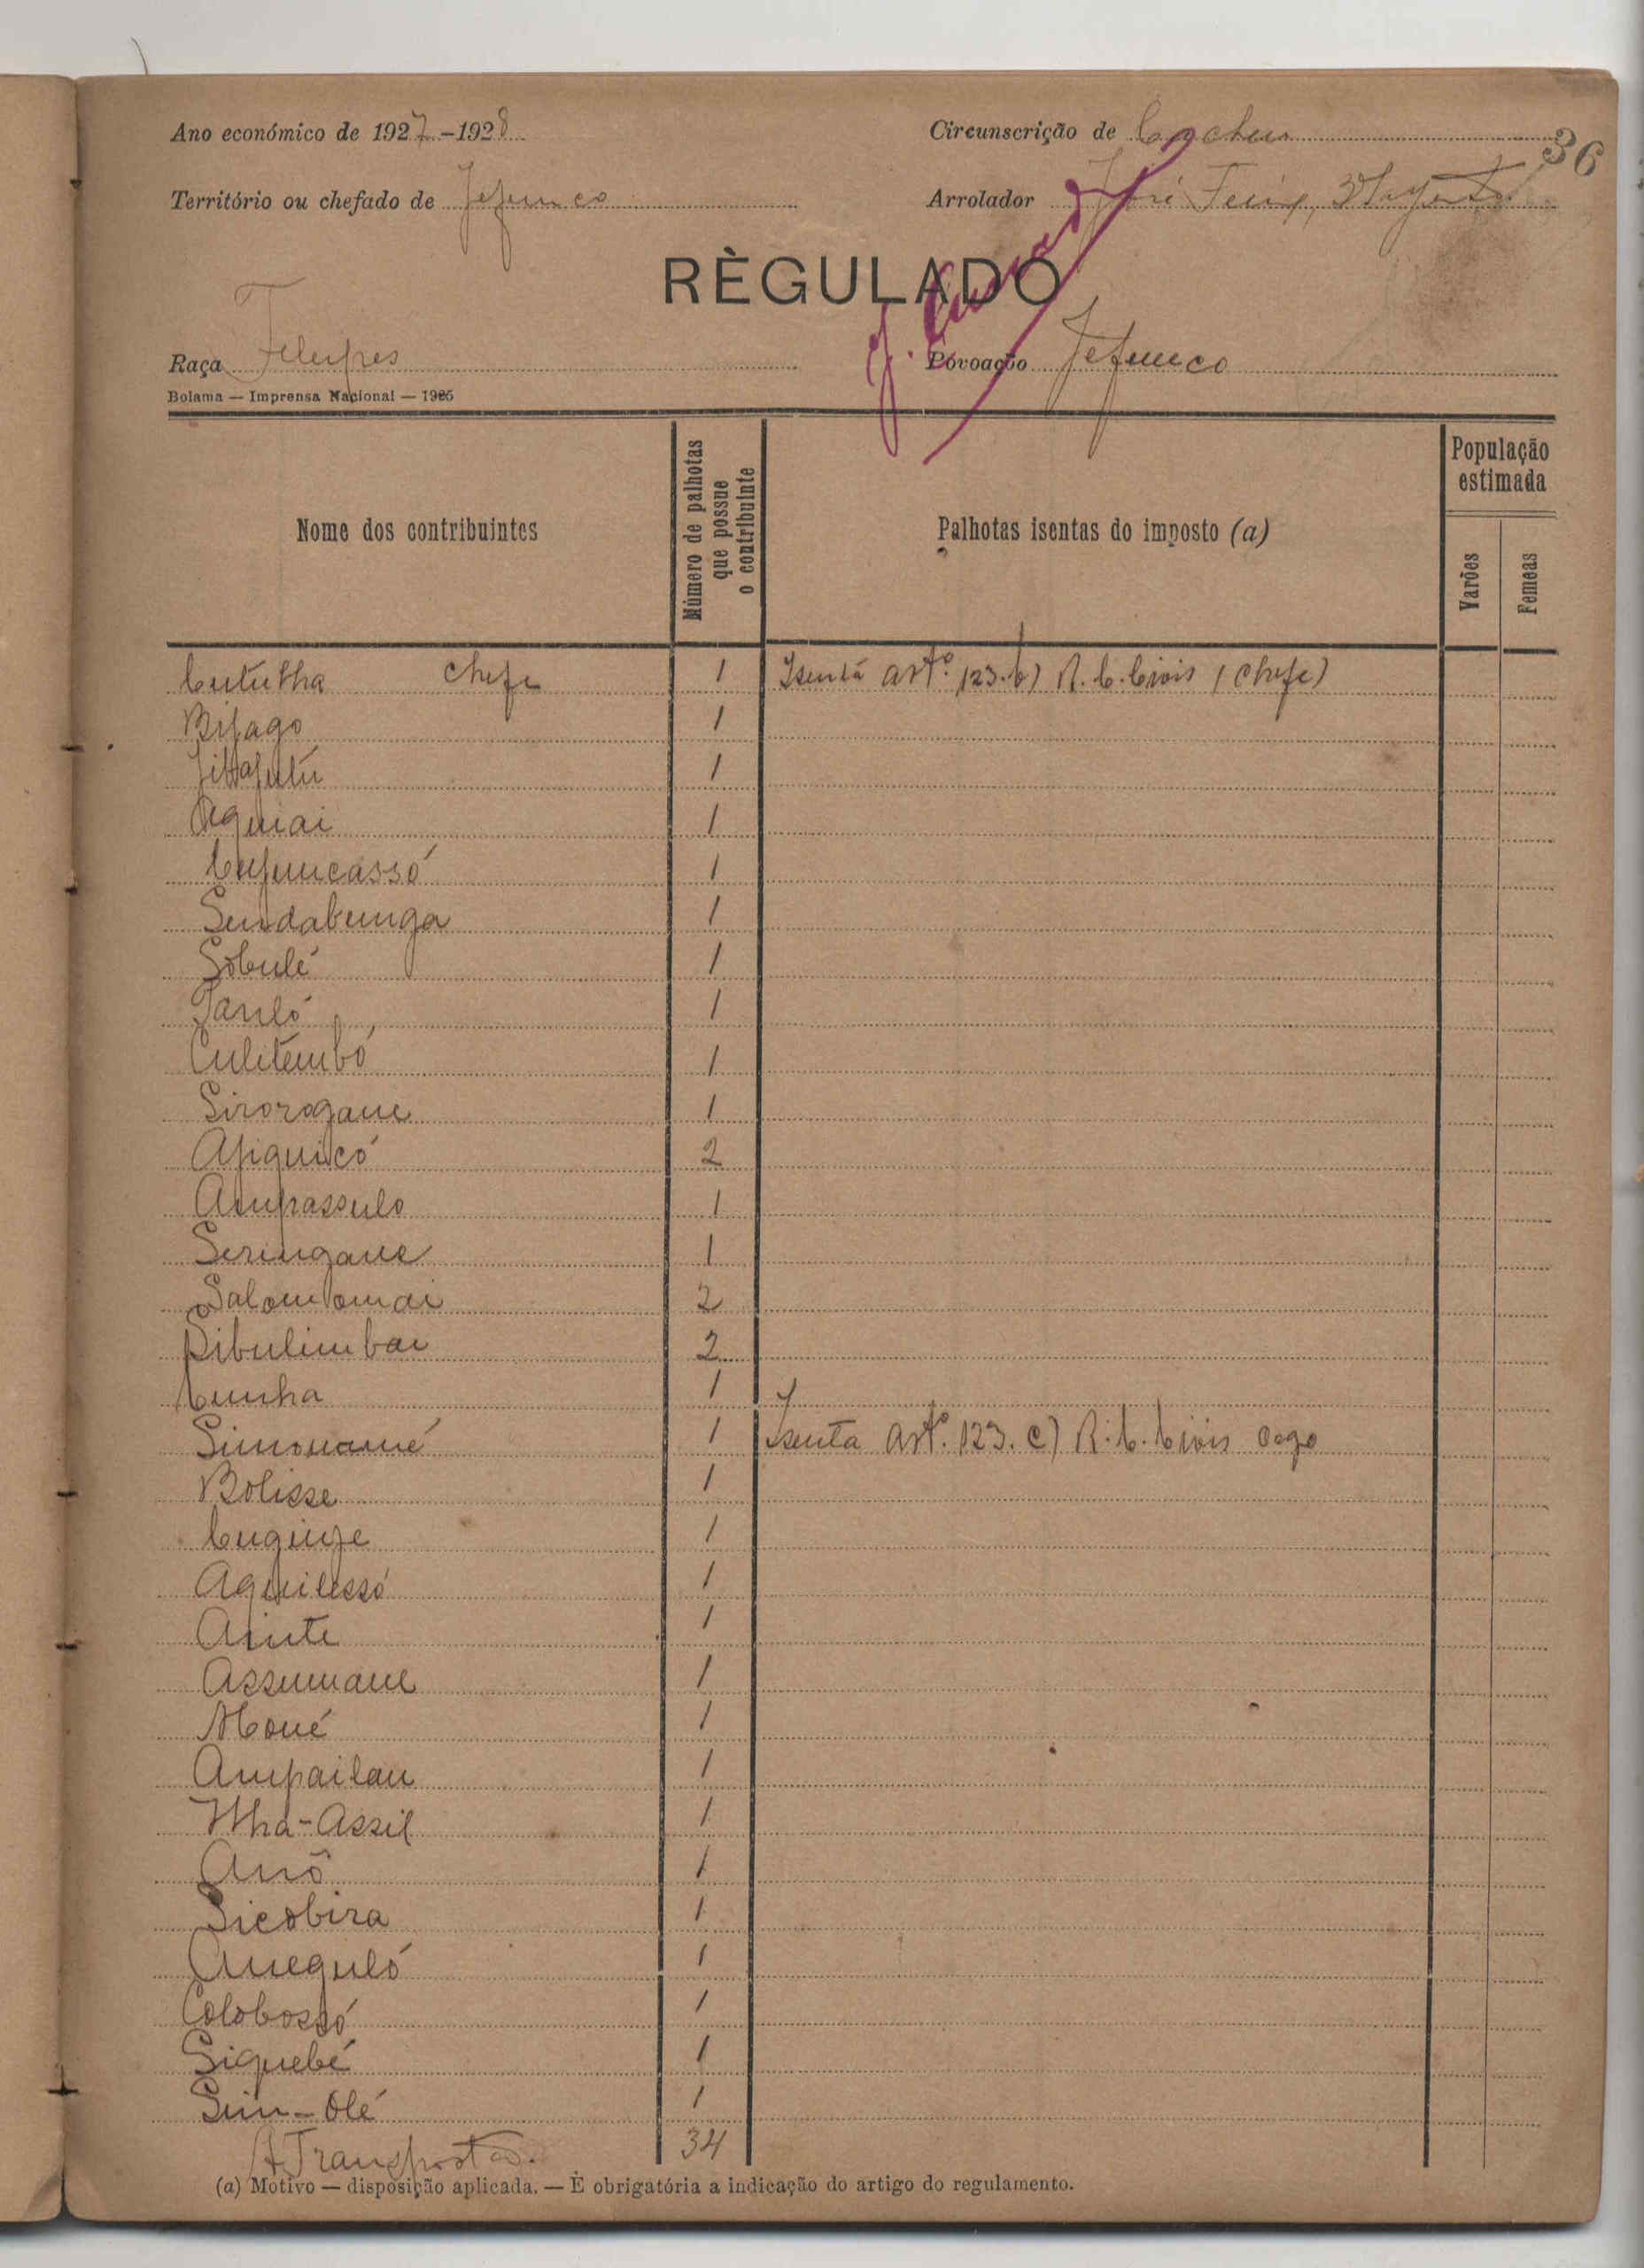 Ano económico de 1927-1928
Circunscrição de Cacheu
36
Território ou chefado de Jefunco
Arrolador
RÈGULADO
Raça Felupes
Povoação Jefunco
Bolama — Imprensa Nacional — 1925
Nome dos contribuintes
Número de palhotas que possue o contribuinte
Palhotas isentas do imposto (a)
População estimada
Varões
Femeas
Cututha chefe 1 Isenta artº. 123. b) R. C. Civis (chefe)
Bijago 1
1
Aguiai 1
Cufuncassó 1
Sundabunga 1
Sobulé 1
Pauló 1
Culitembó 1
Sirorogane 1
2
Ampassulo 1
Seringane 1
2
Sibulimbai 2
Cunha 1
Simonamé 1 Isenta artº. 123. C) R. C. Civis cego
Bolisse 1
1
Aquilessó 1
1
Assumane 1
1
Ampailau 1
1
Anô 1
Sicobira 1
Aneguló 1
Colobossó 1
Siquebé 1
Sim-Olé 1
A Transportar 34
(a) Motivo — disposição aplicada. — È obrigatória a indicação do artigo do regulamento.